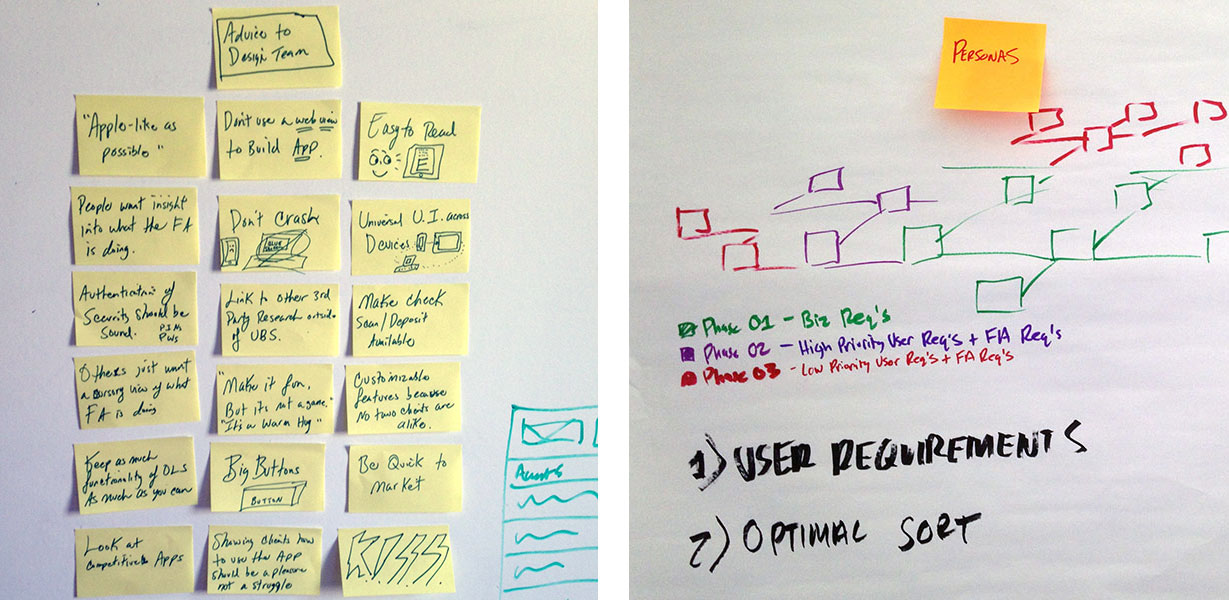 Advice to
Design Team
"Apple-like as
possible"
Don't use a web view
to Build App.
Easy to Read
People want insight
into what the FA
is doing.
Don't Crash
BLUE
Universal U.I. across
Devices
Authentication &
Security should be
sound.
PINs
PWs
Link to other 3rd
Party Research outside
of UBS.
Make check
Scan/Deposit
Available
Others just want
a cursory view of what
FA is doing
"Make it fun,
But its not a game."
"It's a Warm Hug"
Customizable
features because
No two clients are
alike.
Keep as much
functionality of OLS
As much as you can
Big Buttons
BUTTON
Be Quick to
Market
Look at
competitive Apps
Showing clients how
to use the App
should be a pleasure
not a struggle
K.I.S.S.
Accounts
PERSONAS
Phase 01 - Biz Req's
Phase 02 - High Priority User Req's + FA Req's
Phase 03 - Low Priority User Req's + FA Req's
1) USER REQUIREMENTS
2) OPTIMAL SORT